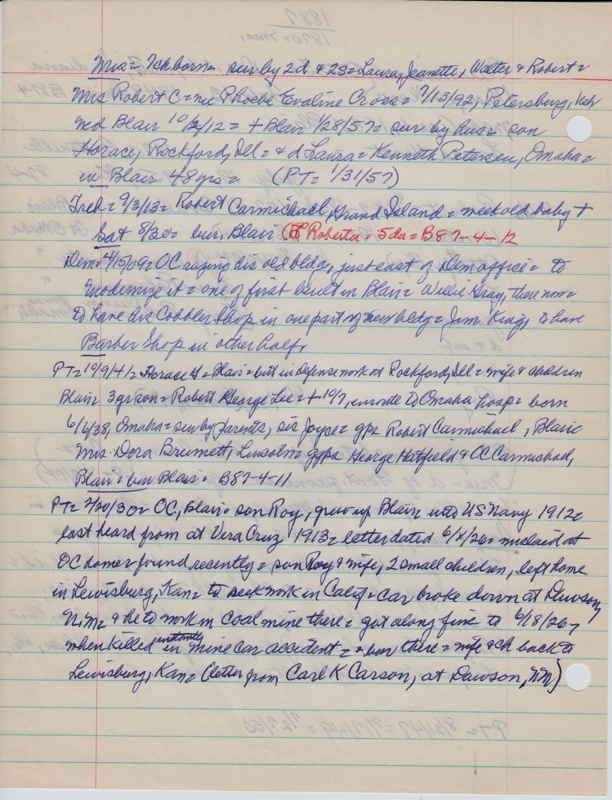 Mrs = Ichborn = sur by 2d & 2s = Laura, Jeanette, Walter & Robert =
Mrs Robert C = nee Phoebe Evaline Cross = 7/13/92, Petersburg, Neb
md Blair 10/2/12 = + Blair 1/28/57 = sur by hus = son
Horace, Rockford, Ill = & d Laura = Kenneth Petersen, Omaha =
in Blair 48 yrs = (PT = 1/31/57)
Trib = 9/3/13 = Robert Carmichael, Grand Island = week old baby +
Sat 8/30 = bur. Blair (Roberta = 5da = B87-4-12
Dem = 4/15/09 = OC razing his old bldg, just east of Dem office = to
modernize it = one of first built in Blair = Willie Gray, there now =
to have his Cobbler Shop in one part of new bldg = Jim King, to have
Barber Shop in other half.
PT = 10/9/41 = Horace = Blair = but in defense work at Rockford, Ill = wife & children
Blair = 3 yr son = Robert George Lee = + 10/7, enroute to Omaha hosp = born
6/6/38, Omaha = sur by parents, sis Joyce = gps Robert Carmichael, Blair
Mrs Dora Brumett, Lincoln = ggps George Hatfield & OC Carmichael,
Blair = bur Blair = B87-4-11
PT = 2/20/30 = OC, Blair = son Roy, grew up Blair = into US Navy 1912 =
last heard from at Vera Cruz 1913 = letter dated 6/ /26 = mislaid at
OC home = found recently = son Roy & wife, 2 small children, left home
in Lewisburg, Kan = to seek work in Calif = car broke down at Dawson,
N.M. = & he to work in coal mine there = got along fine to 6/18/26 =
when killed instantly in mine car accident = bur, there = wife & ch back to
Lewisburg, Kan = (letter from Carl K Carson, at Dawson, N.M.)